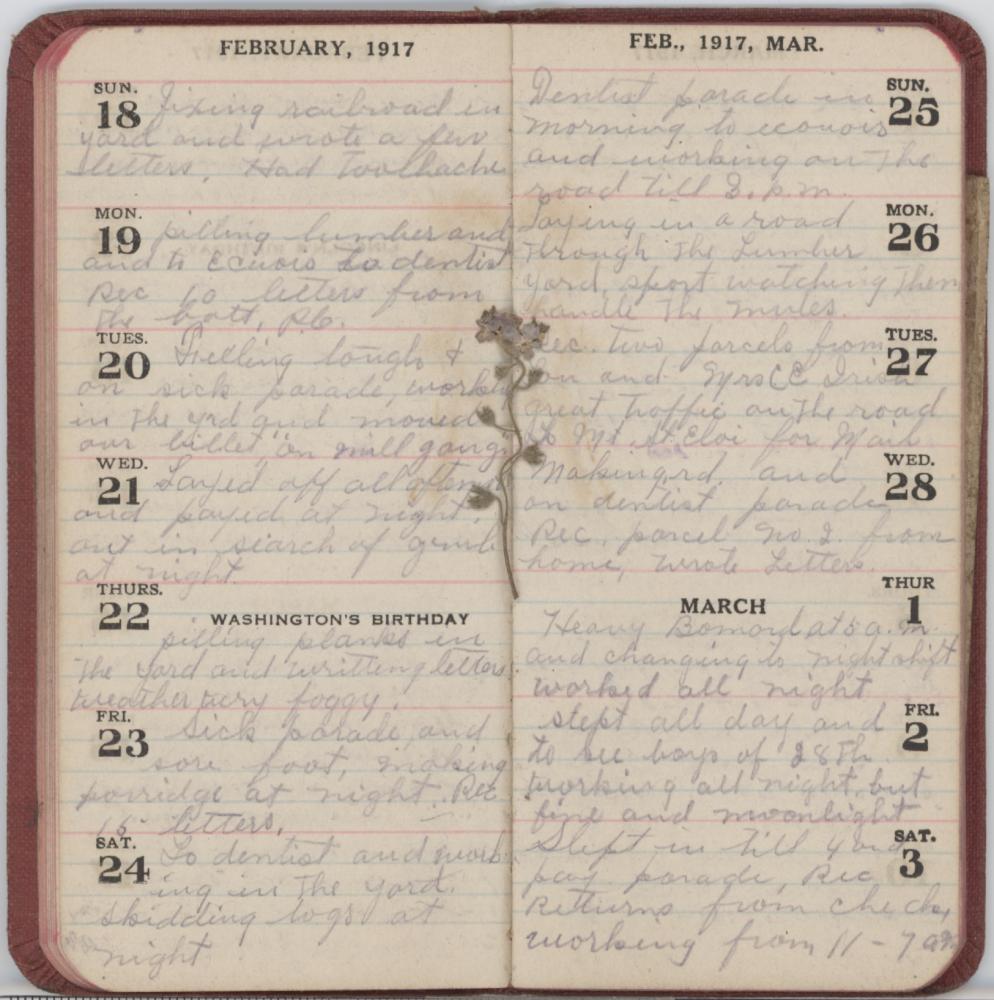 FEBRUARY, 1917
SUN.
18 Fixing railroad in
yard and wrote a few
letters. Had toothache
MON.
19 pilling lumber and
and to Ecuois to dentist
Rec 10 letters from
the batt,
TUES.
20 Feeling tough &
on sick parade, work
in the yrd and moved
our billet, on mill gang
WED.
21 Layed off all
and payed at night.
out in search of grub
at night
THURS.
22 WASHINGTON'S BIRTHDAY
pilling planks in
the yard and writting letters
weather very foggy.
FRI.
23 Sick parade, and
sore foot, making
porridge at night. Rec
15 letters.
SAT.
24 To dentist and work
ing in the yard.
skidding logs at
night
FEB., 1917, MAR.
SUN.
25 Dentist parade in
morning to ecouois
and working on the
road till 8. p.m.
MON.
26 Laying in a road
through the Lumber
yard, sport watching them
handle the mules.
TUES.
27 Rec. two parcels from
and Mrs
great traffic on the road
to Mt. St. Eloi for Main
WED.
28 Making rd. and
on dentist parade
Rec. parcel no. 2 from
home, wrote Letters.
MARCH
THUR
1 Heavy Bomord at 5 a.m.
and changing to night shift
worked all night
FRI.
2 slept all day and
to see boys of 28th.
working all night, but
fine and moonlight
SAT.
3 Slept in till 4 and
pay parade, Rec
Returns from checks,
working from 11 - 7 am